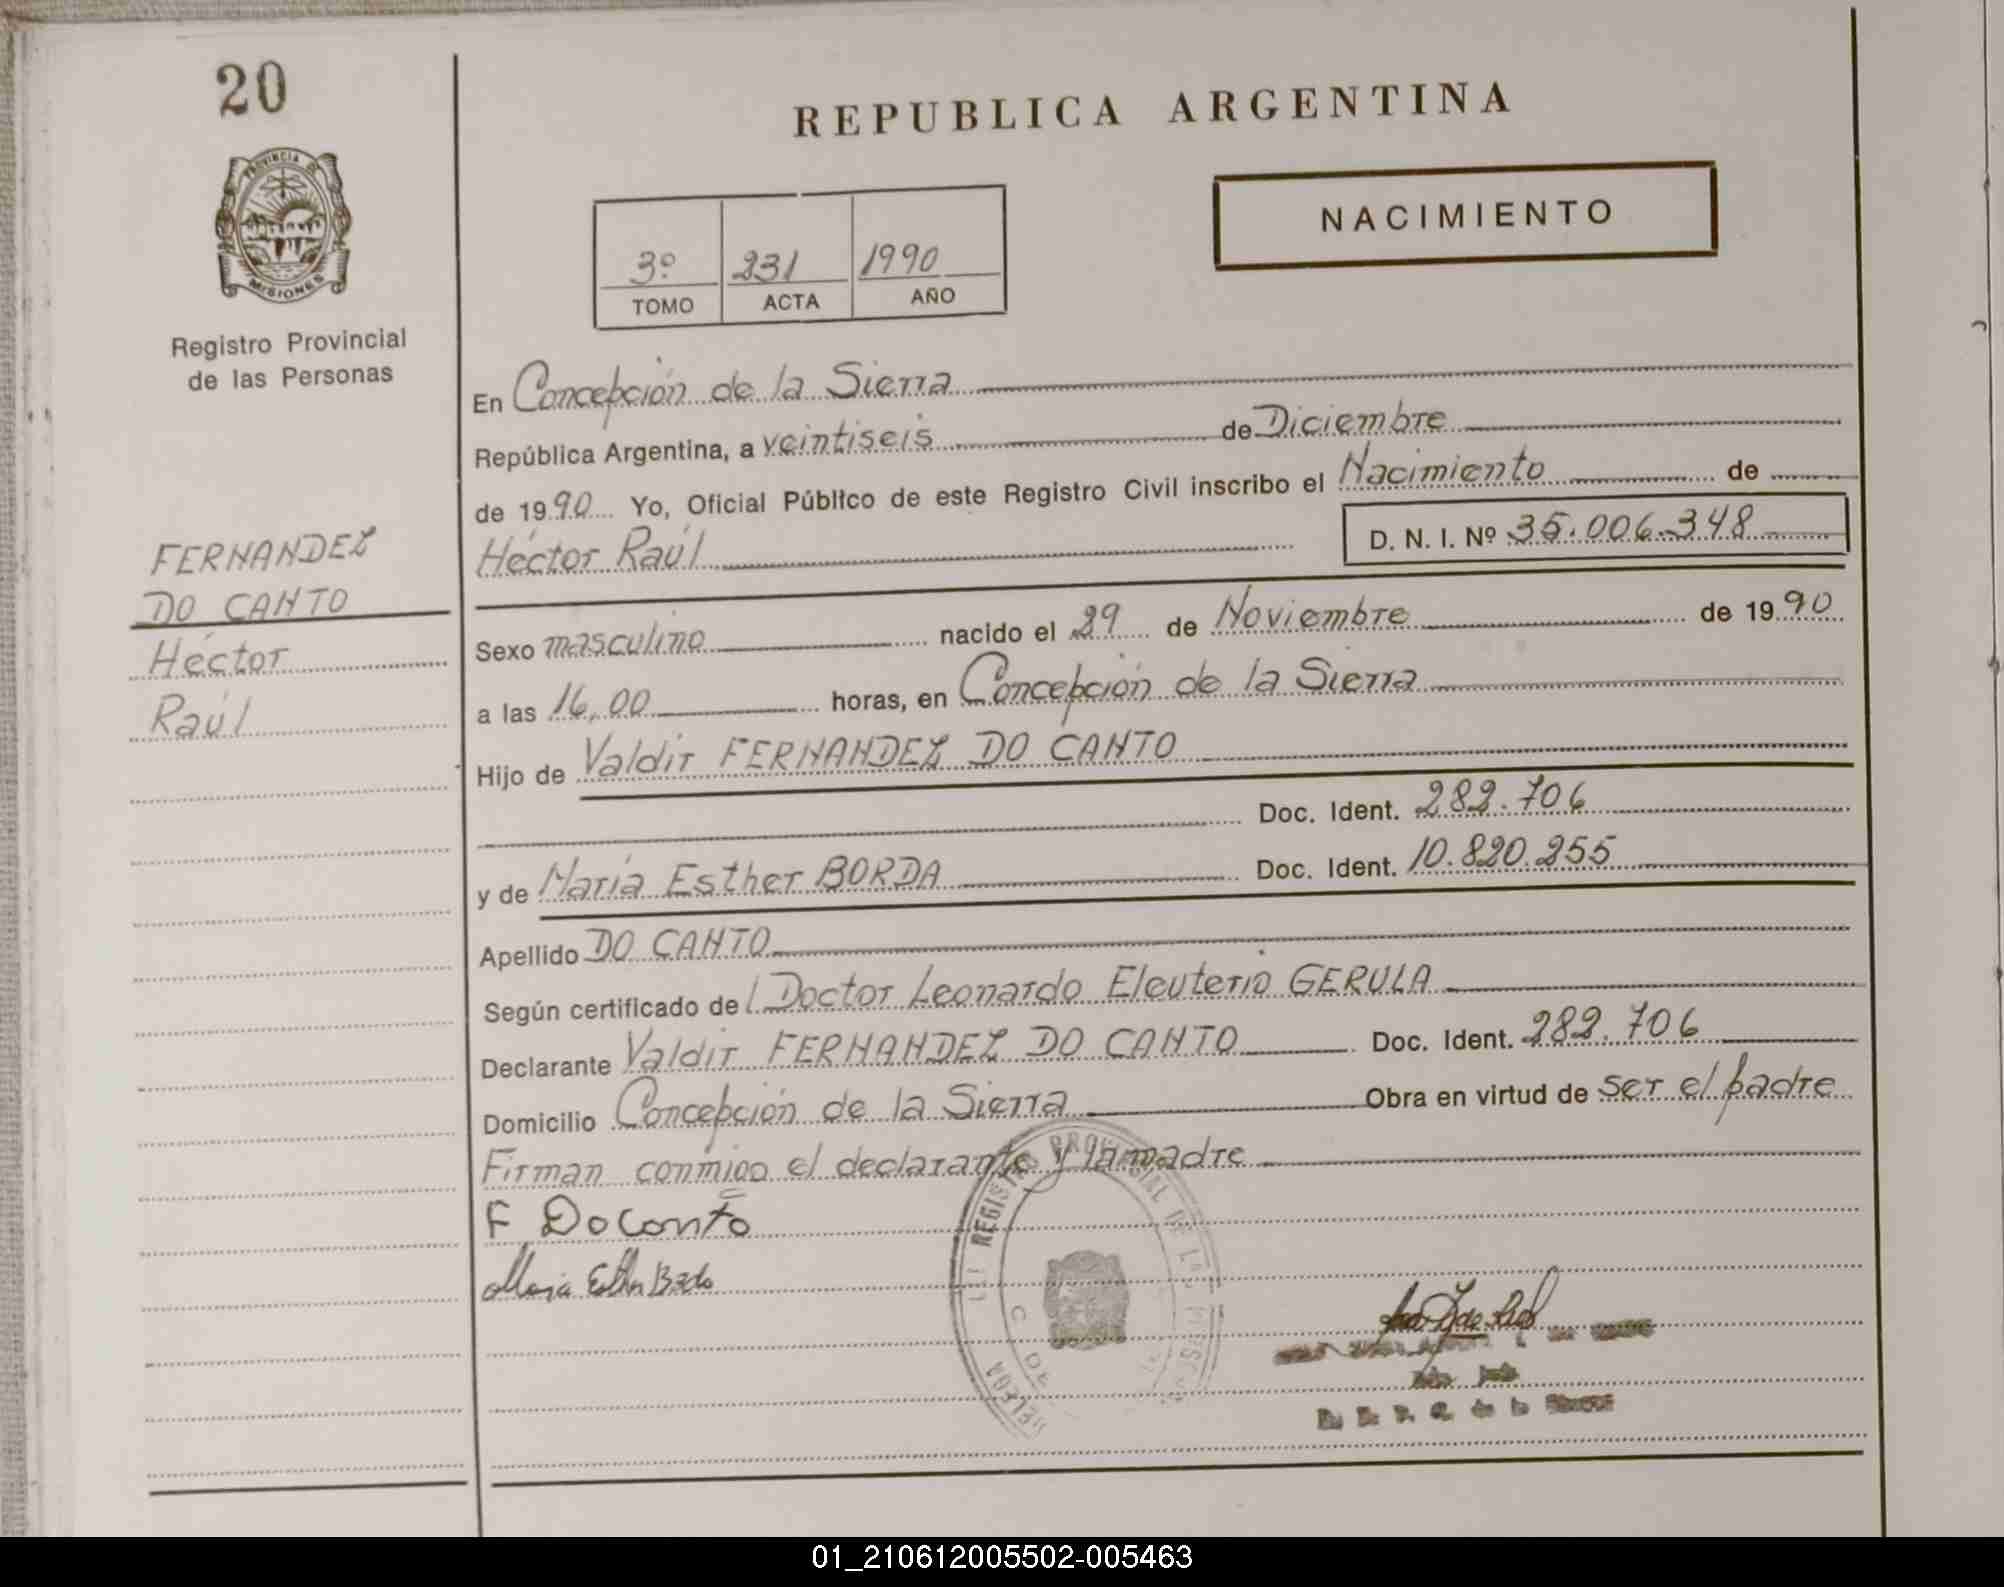 20
REPUBLICA ARGENTINA
NACIMIENTO
3º 231 1990
TOMO ACTA AÑO
PROVINCIA DE
MISIONES
Registro Provincial
de las Personas
FERNANDEZ
DO CANTO
Héctor
Raúl
En Concepción de la Sierra
República Argentina, a veintiseis de Diciembre
de 1990 Yo, Oficial Público de este Registro Civil inscribo el Nacimiento de
Héctor Raúl D. N. I. Nº 35.006.348
Sexo masculino nacido el 29 de Noviembre de 1990
a las 16,00 horas, en Concepción de la Sierra
Hijo de Valdir FERNANDEZ DO CANTO
Doc. Ident. 282.706
y de María Esther BORDA Doc. Ident. 10.820.255
Apellido DO CANTO
Según certificado del Doctor Leonardo Eleuterio GERULA
Declarante Valdir FERNANDEZ DO CANTO Doc. Ident. 282.706
Domicilio Concepción de la Sierra Obra en virtud de ser el padre
Firman conmigo el declarante y la madre
F DoConto
Maria Esther Borda
REGISTRO PROVINCIAL DE LAS
01_210612005502-005463